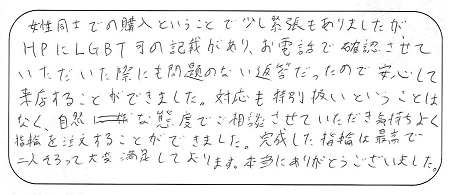 女性同士での購入ということで少し緊張もありましたが
HPにLGBT可の記載があり、お電話で確認させて
いただいた際にも問題のない返答だったので安心して
来店することができました。対応も特別扱いということは
なく、自然な態度でご相談させていただき気持ちよく
指輪を注文することができました。完成した指輪は最高で
二人そろって大変満足しております。本当にありがとうございました。